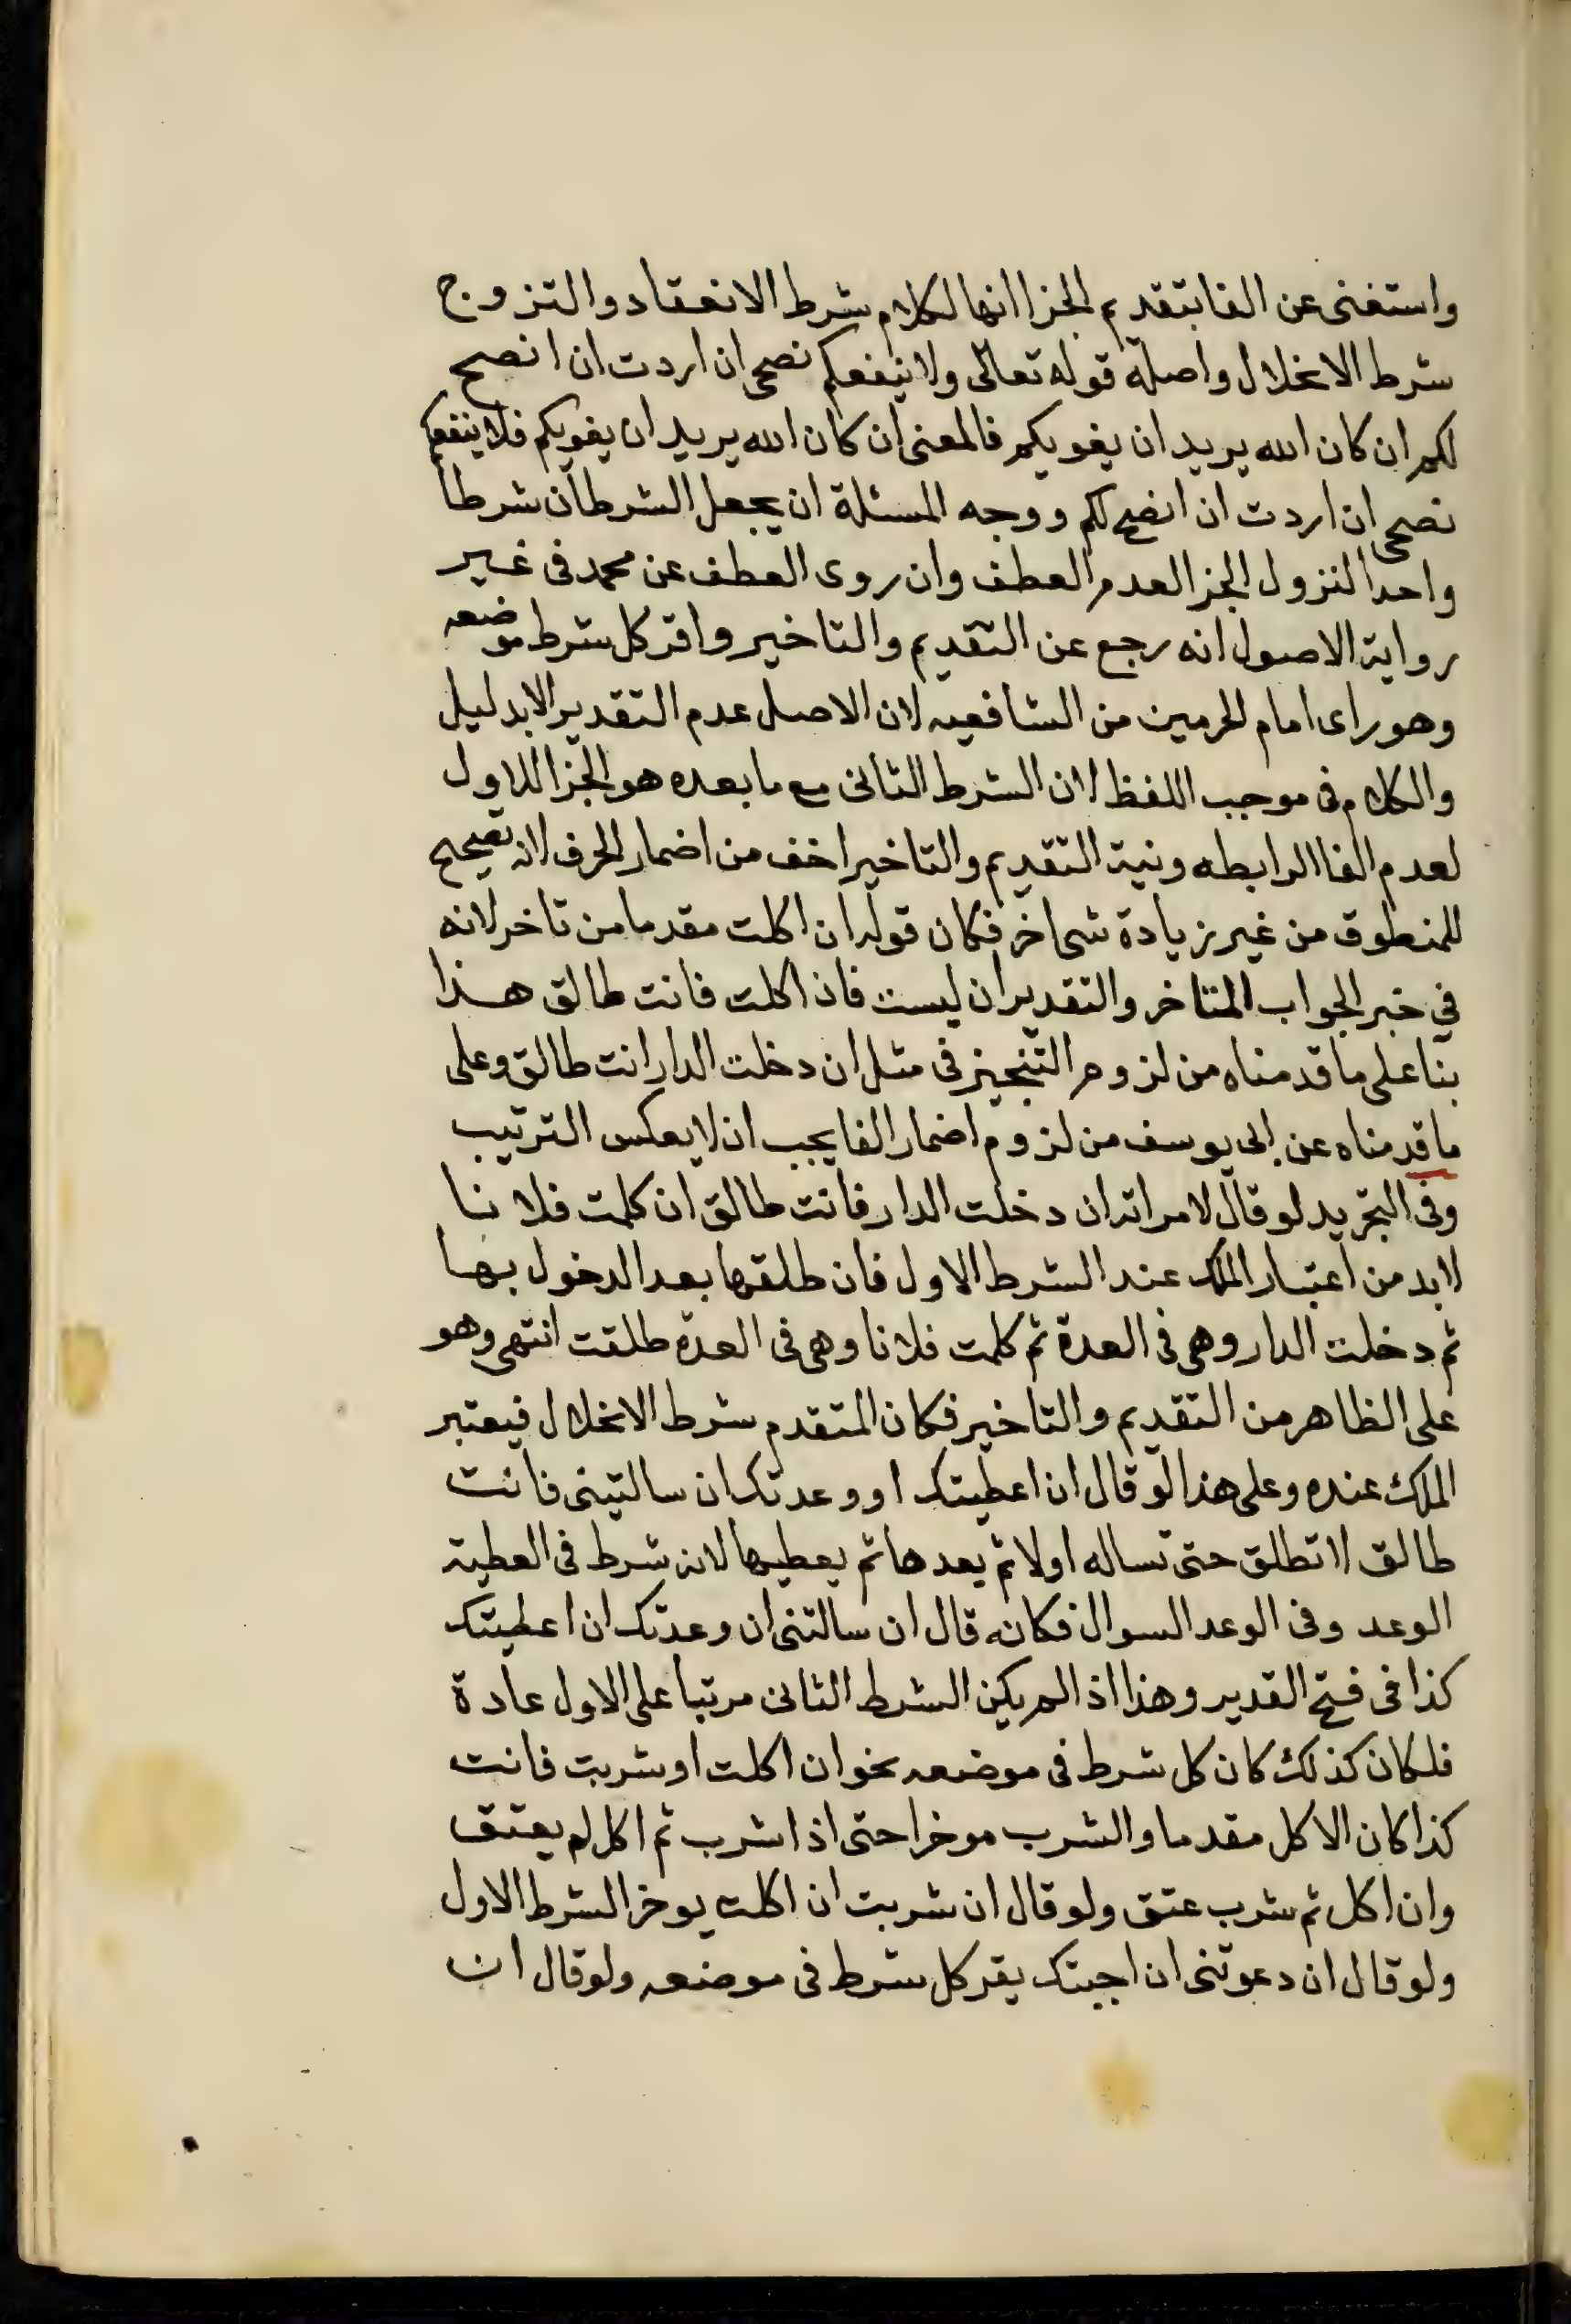 واستغنى عن الفا بتقديم الجزا انها لكلام شرط الانعقاد والتزوج
شرط الانحلال واصله قوله تعالى ولا ينفعكم نصحى ان اردت ان انصح
لكم ان كان الله يريد ان يغويكم فالمعنى ان كان الله يريد ان يغويكم فلا ينفعكم
نصحى ان اردت ان انصح لكم ووجه المسئلة ان يجعل الشرطان شرطا
واحدا لنزول الجزا لعدم العطف وان روى العطف عن محمد فى غير
رواية الاصول انه رجع عن التقديم والتاخير واقر كل شرط موضعه
وهو راى امام الحرمين من الشافعيه لان الاصل عدم التقدير الا بدليل
والكلام فى موجب اللفظ لا ان الشرط الثانى مع ما بعده هو الجزا للاول
لعدم الفا الرابطه ونية التقديم والتاخير اخف من اضمار الحرف لانه تصحيح
للمنطوق من غير زيادة شى اخر فكان قوله ان اكلت مقدما من تاخر لانه
في خبر الجواب المتاخر والتقدير ان لبست فان اكلت فانت طالق هذا
بنا على ما قدمناه من لزوم التنجيز فى مثل ان دخلت الدار انت طالق وعلى
ما قدمناه عن ابى يوسف من لزوم اضمار الفا يجب ان لا يعكس الترتيب
وفى التجريد لو قال لامراته ان دخلت الدار فانت طالق ان كلمت فلانا
لا بد من اعتبار الملك عند الشرط الاول فان طلقها بعد الدخول بها
ثم دخلت الدار وهى فى العدة ثم كلمت فلانا وهى فى العدة طلقت انتهى وهو
على الظاهر من التقديم والتاخير فكان المتقدم شرط الانحلال فيعتبر
الملك عنده وعلى هذا لو قال ان اعطيتك او وعدتك ان سالتينى فانت
طالق لا تطلق حتى تساله اولا ثم يعدها ثم يعطيها لانه شرط فى العطية
الوعد وفى الوعد السوال فكانه قال ان سالتنى ان وعدتك ان اعطيتك
كذا فى فتح القدير وهذا اذ الم يكن الشرط الثانى مرتبا على الاول عادة
فلكان كذلك كان كل شرط فى موضعه نحو ان اكلت او شربت فانت
كذا كان الاكل مقدما والشرب موخرا حتى اذا شرب ثم اكل لم يعتق
وان اكل ثم شرب عتق ولو قال ان شربت ان اكلت يوخر الشرط الاول
ولو قال ان دعوتنى ان اجبتك يقر كل شرط فى موضعه ولو قال ان